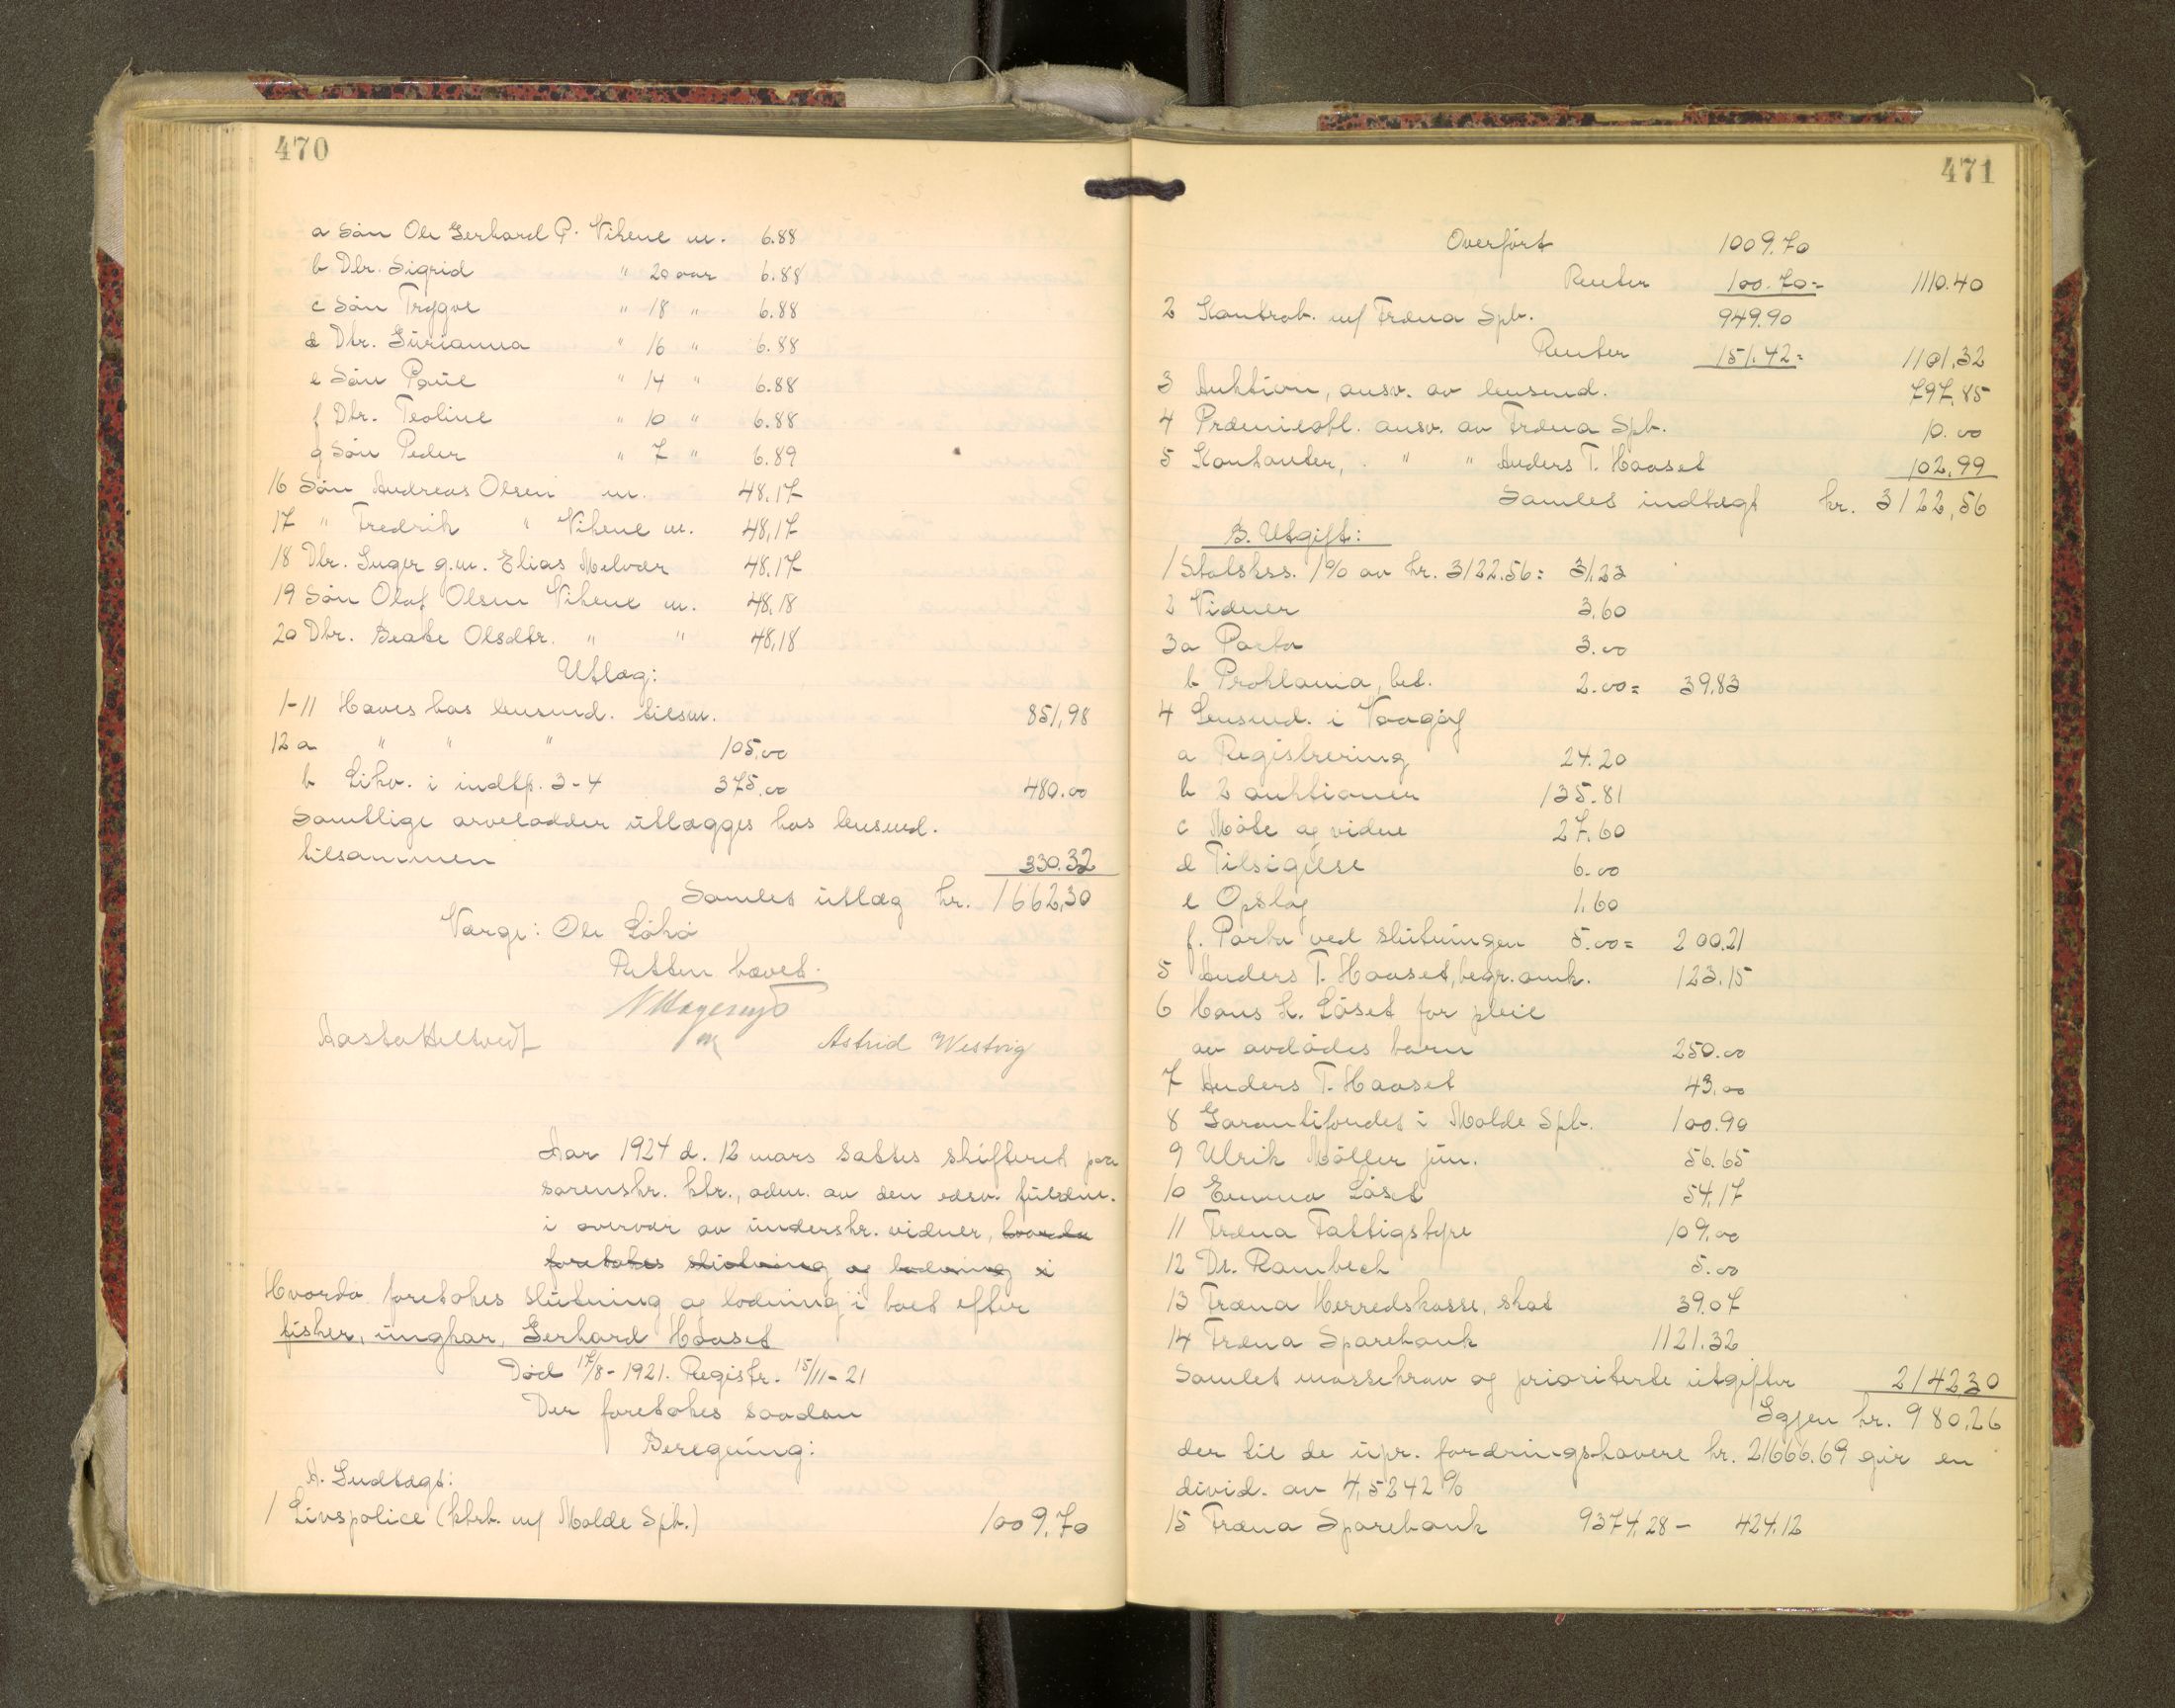 470
a Søn Ole Gerhard P. Vikene m. 6.88
b Dtr. Sigrid " 20 aar 6.88
c Søn Trygve " 18 " 6.88
d Dtr. Gurianna " 16 " 6.88
e Søn Paul " 14 " 6.88
f Dtr. Teoline " 10 " 6.88
g Søn Peder " 7 " 6.89
16 Søn Andreas Olsen m. 48.17
17 " Fredrik " Vikene m. 48,17
18 Dtr. Inger g.m. Elias Melvær 48.17
19 Søn Olaf Olsen Vikene m. 48,18
20 Dtr. Beate Olsdtr. " " 48,18
Utlæg:
1-11 Hæves hos lensmd. tilsm. 851,98
12 a " " " 105,00
b Likv. i indtp. 3-4 375.00 480.00
Samtlige arvelodder utlægges hos lensmd.
tilsammen 330.32
Samlet utlæg kr. 1662,30
Værge: Ole Løkø
Retten hævet.
Aasta Heltvedt Astrid Westvig
Aar 1924 d. 12 mars sattes skifteret paa
sorenskr. ktr., adm. av den edsv. fuldm.
i overvær av underskr. vidner, hvorda
foretokes slutning og lodning i
Hvorda foretokes slutning og lodning i boet efter
fisker, ungkar, Gerhard Haaset
Død 17/8 - 1921. Registr. 15/11 - 21
Der foretokes saadan
Beregning:
A. Indtægt:
1 Livspolice (ktrb. m/ Molde Spb.) 1009,70
471
Overført 1009.70
Renter 100.70 = 1110.40
2 Kontrab. m/ Fræna Spb. 949.90
Renter 151.42 = 1101,32
3 Auktion, ansv. av lensmd. 797,85
4 Præmieobl. ansv. av Fræna Spb. 10.00
5 Kontanter, " " Anders T. Haaset 102,99
Samlet indtægt kr. 3122,56
B. Utgift:
1 Statskss. 1% av kr. 3122.56 = 31.23
2 Vidner 3.60
3a Porto 3.00
b Proklama, bet. 2.00 = 39.83
4 Lensmd. i Vaagøy
a Registrering 24.20
b 2 auktioner 135.81
c Møte og vidne 27.60
d Tilsigelse 6.00
e Opslag 1.60
f. Porto ved slutningen 5.00 = 200,21
5 Anders T. Haaset, begr. omk. 123.15
6 Hans L. Løset for pleie
av avdødes barn 250.00
7 Anders T. Haaset 43.00
8 Garantifondet i Molde Spb. 100.90
9 Ulrik Møller jun. 56.65
10 Emma Løset 54,17
11 Fræna Fattigstyre 109.00
12 Dr. Rambech 5.00
13 Fræna Herredskasse, skat 39.07
14 Fræna Sparebank 1121.32
Samlet massekrav og prioriterte utgifter 2142.30
Igjen kr. 980.26
der til de upr. fordringshavere kr. 21666.69 gir en
divid. av 4,5242 %
15 Fræna Sparebank 9374,28 - 424.12